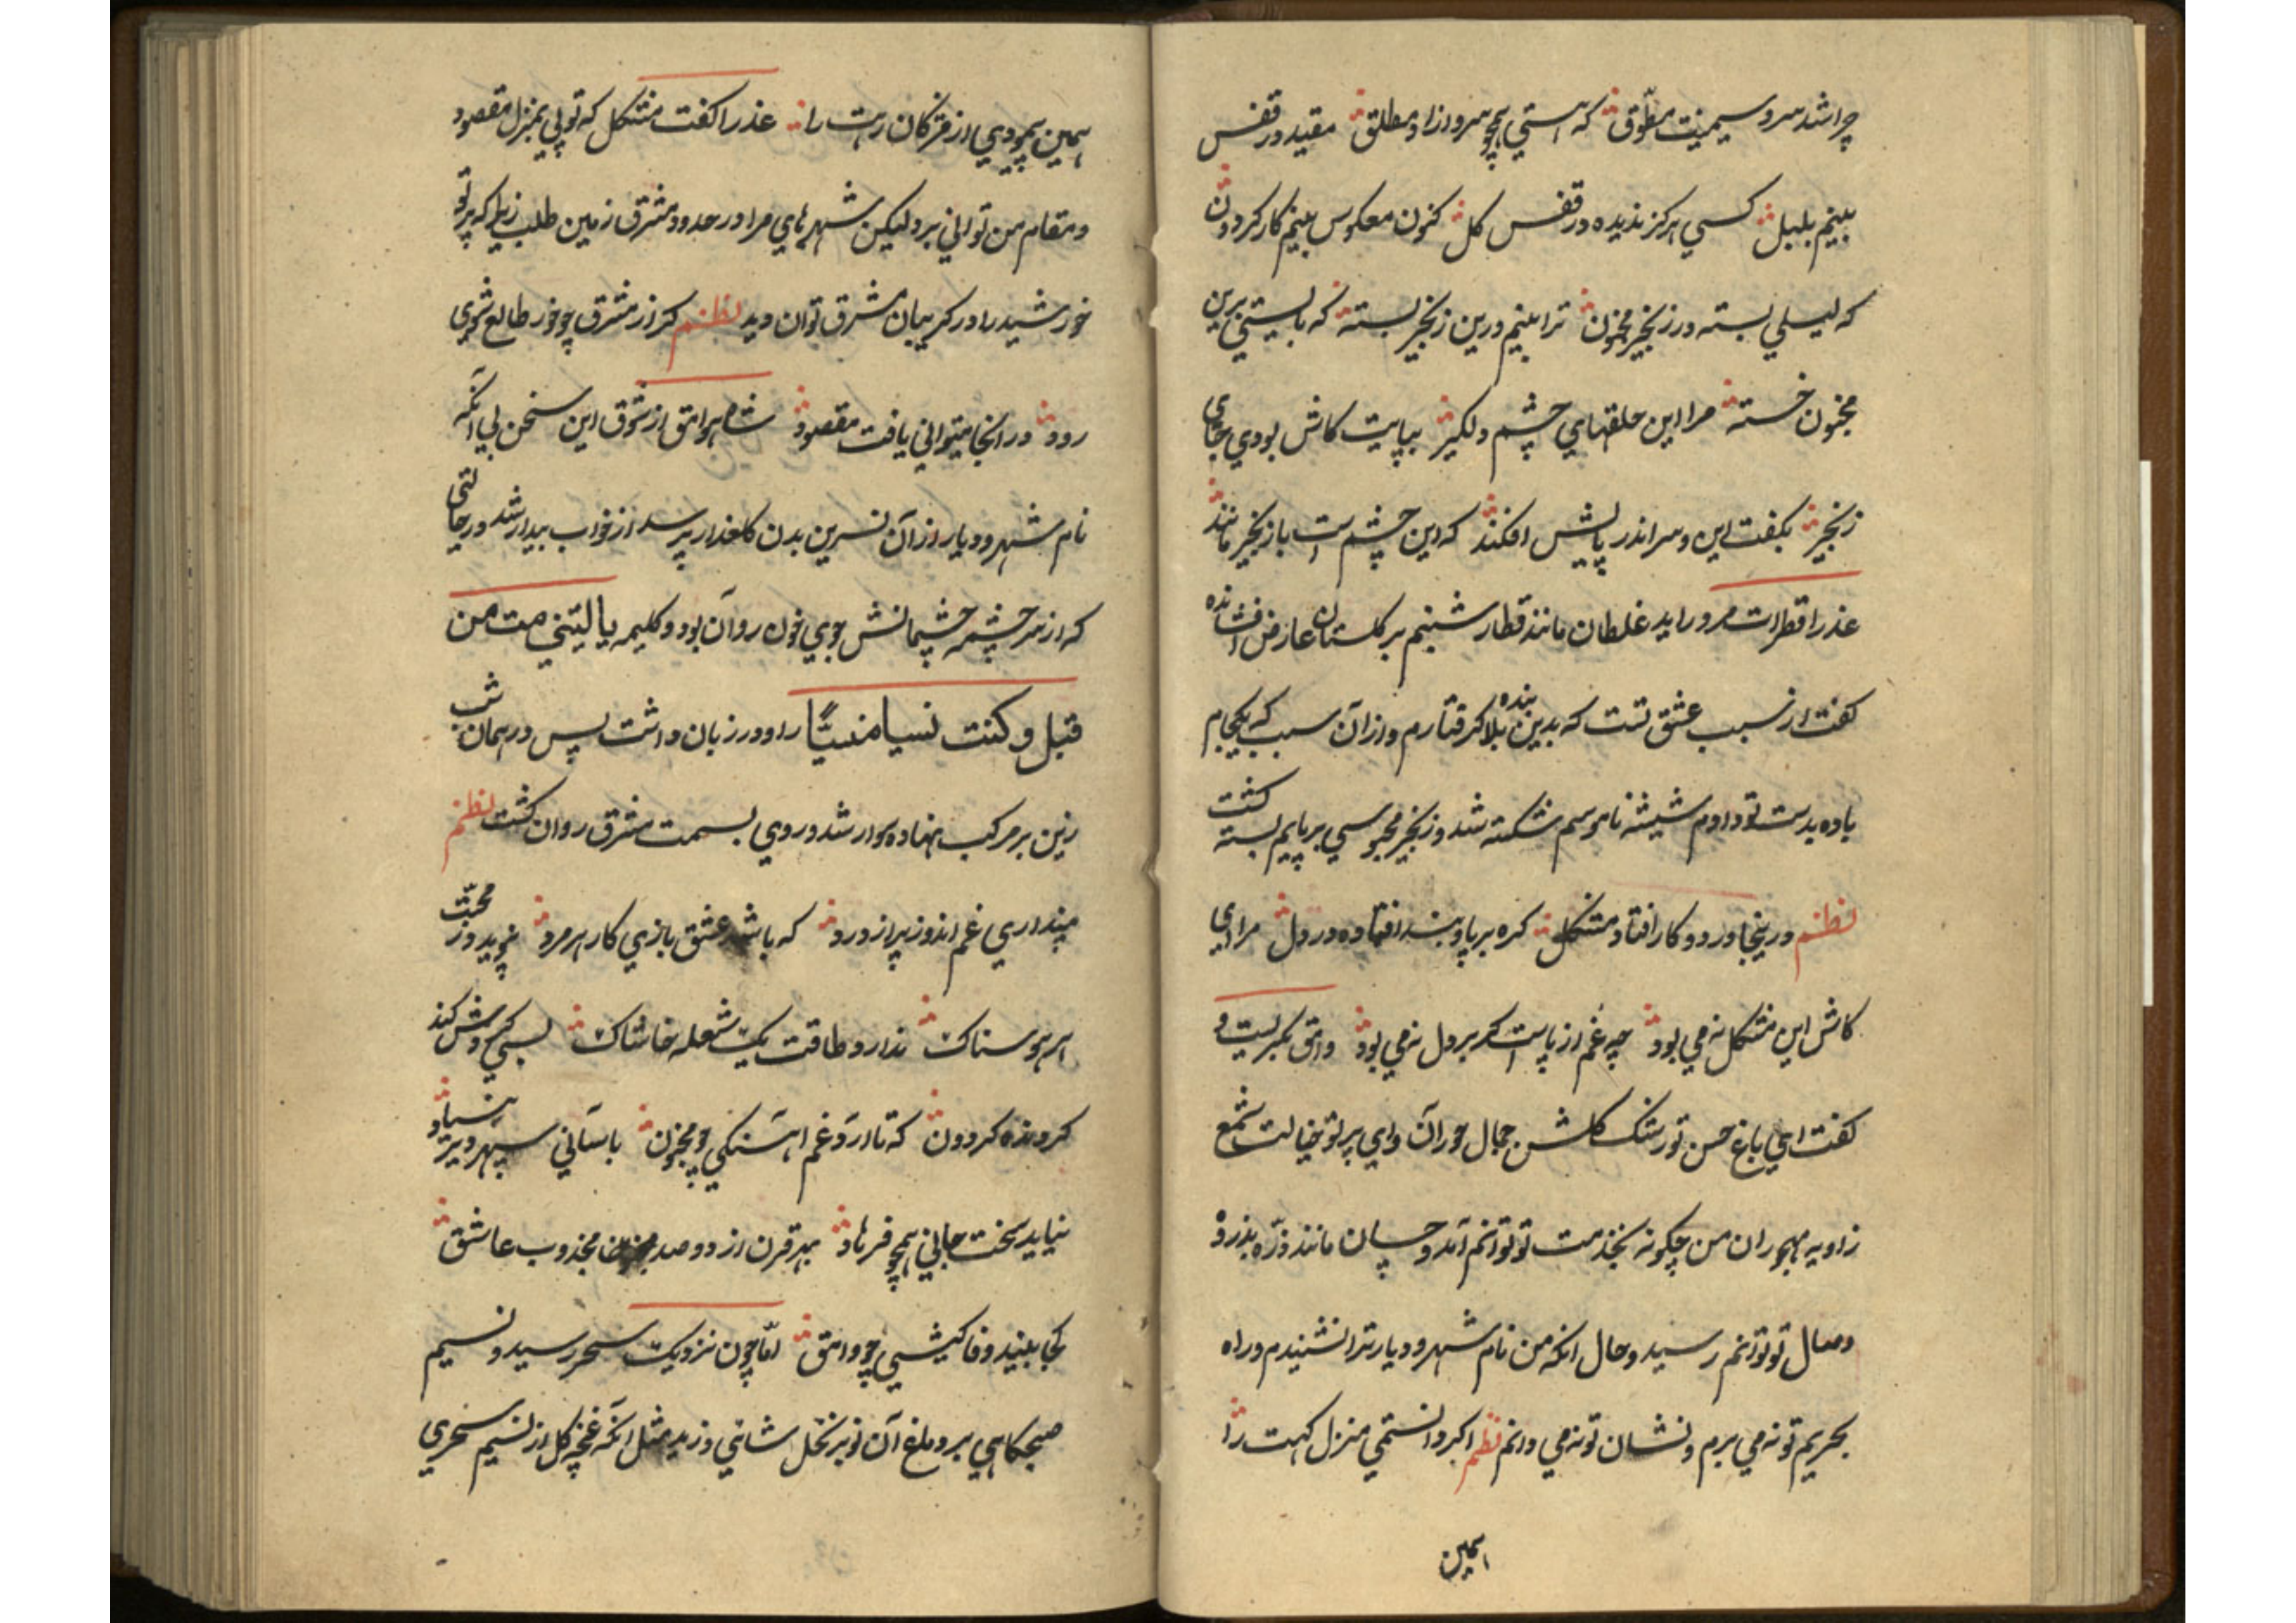 چرا شد سرو سیمینت مطوّق که هستی همچو سرو ازاد و مطلق مقید در قفس
بینم بلبل کسی هرکز ندیده در قفس کل کنون معکوس بینم کار کردون
که لیلی بسته در زنجیر مجنون ترا بینم درین زنجیر بسته که بایستی برین
مجنون خسته مرا این حلقهای چشم دلکیر بپایت کاش بودی جای
زنجیر بکفت این و سر اندر پایش افکند که این چشم است با زنجیر مانند
عذرا قطرات مروراید غلطان مانند قطار شبنم بر کلستان عارض افشانده
کفت از سبب عشق تست که بدین بند بلا کرفتارم و از آن سبب که یکجام
باده بدست تو دادم شیشه ناموسم شکسته شد و زنجیر محبوسی بر پایم بسته کشت
نظم درینجا در دو کار افتاد مشکل کره بر پا و بند افتاده در دل مرا ای
کاش این مشکل نه می بود چه غم از پاست کر بر دل نه می بود وامق بکریست و
کفت ای باغ حسن تو رشک کلشن جمال حوران وای پرتو خیالت شمع
زاویه مهجوران من چکونه بخدمت تو توانم آمد و چسان مانند ذرّه بذروهٔ
وصال تو توانم رسید و حال انکه من نام شهر و دیار ترا نشنیدم و راه
بحریم تو نه می برم و نشان تو نه می دانم نظم اکر دانستمی منزل کهت را
همین
همین پیمودی از مژکان رهت را عذرا کفت مشکل که تو پی بمنزل مقصود
و مقام من توانی برد لیکن شهرهای مرا در حدود مشرق زمین طلب زیرا که پرتو
خورشید را در کریبان مشرق توان دید نظم کر از مشرق چو خور طالع شوی
زود در انجا میتوانی یافت مقصود شاهزاده وامق از شوق این سخن بی آنکه
نام شهر و دیار از آن نسرین بدن کلعذار پرسد از خواب بیدار شد در حالتی
که از سرچشمه چشمانش جوی خون روان بود و کلیمه یا لیتنی مت من
قبل و کنت نسیا منسیّا را ورد زبان داشت پس در همان شب
زین بر مرکب نهاده سوار شد و روی بسمت مشرق روان کشت نظم
مپنداری غم اندوز پر از درد که باشد عشق بازی کار هر مرد نپوید در محبّت
هر هوسناک ندارد طاقت یک شعله خاشاک بسی کروش کند
کردنده کردون که تا ارد غم اهنکی چو مجنون باسانی سپهر دیر بنیاد
نیاید سخت جانی همچو فرهاد بهر قرن از دو صد مجذوب عاشق
کجا بیند وفا کیشی چو وامق امّا چون نزدیک سحر رسید و نسیم
صبحکاهی بر دماغ آن نوبر نخل شاهی وزید مثل انکه غنچه کل از نسیم سحری